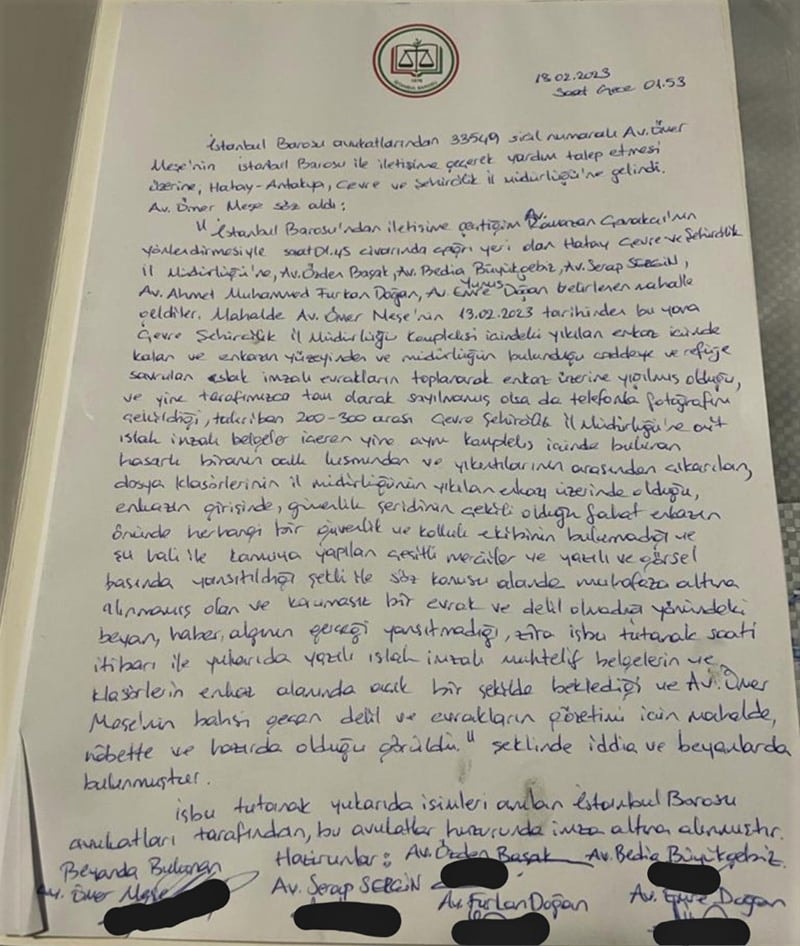 1878
İSTANBUL BAROSU
18.02.2023
Saat Gece 01.53
İstanbul Barosu avukatlarından 33549 sicil numaralı Av. Ömer
Meşe'nin İstanbul Barosu ile iletişime geçerek yardım talep etmesi
üzerine, Hatay-Antakya, Çevre ve Şehircilik İl Müdürlüğü'ne gelindi.
Av. Ömer Meşe söz aldı:
"İstanbul Barosu'ndan iletişime geçtiğim Av.
yönlendirmesiyle saat 01.45 civarında çağrı yeri olan Hatay Çevre ve Şehircilik
İl Müdürlüğü'ne, Av. Özden Başak, Av. Bedia Büyükgebiz, Av. Serap SERGİN,
Av. Ahmet Muhammed Furkan Doğan, Av. Yunus Emre Doğan belirlenen mahalle
geldiler. Mahalde Av. Ömer Meşe'nin 13.02.2023 tarihinden bu yana
Çevre Şehircilik İl Müdürlüğü Kompleksi içindeki yıkılan enkaz içinde
kalan ve enkazın yüzeyinden ve müdürlüğün bulunduğu caddeye ve refüje
savrulan ıslak imzalı evrakların toplanarak enkaz üzerine yığılmış olduğu,
ve yine tarafımızca tam olarak sayılmamış olsa da telefonla fotoğrafını
çekildiği, takriben 200-300 arası Çevre Şehircilik İl Müdürlüğü'ne ait
ıslak imzalı belgeler içeren yine aynı kompleks içinde bulunan
hasarlı binanın kısmından ve yıkıntılarının arasından çıkarılan,
dosya klasörlerinin il müdürlüğünün yıkılan enkazı üzerinde olduğu,
enkazın girişinde, güvenlik şeridinin çekili olduğu fakat enkazın
önünde herhangi bir güvenlik ve kolluk ekibinin bulunmadığı ve
şu hali ile kamuya yapılan çeşitli merciler ve yazılı ve görsel
basında yansıtıldığı şekli ile söz konusu alanda muhafaza altına
alınmamış olan ve korumasız bir evrak ve delil olmadığı yönündeki
beyan, haber, algının gerçeği yansıtmadığı, zira işbu tutanak saati
itibarı ile yukarıda yazılı ıslak imzalı muhtelif belgelerin ve
klasörlerin enkaz alanında açık bir şekilde beklediği ve Av. Ömer
Meşe'nin bahsi geçen delil ve evrakların gözetimi için mahalde,
nöbette ve hazırda olduğu görüldü." şeklinde iddia ve beyanlarda
bulunmuştur.
İşbu tutanak yukarıda isimleri anılan İstanbul Barosu
avukatları tarafından, bu avukatlar huzurunda imza altına alınmıştır.
Beyanda Bulunan Hazirunlar: Av. Özden Başak Av. Bedia Büyükgebiz
Av. Ömer Meşe Av. Serap SERGİN Av. Furkan Doğan Av. Emre Doğan